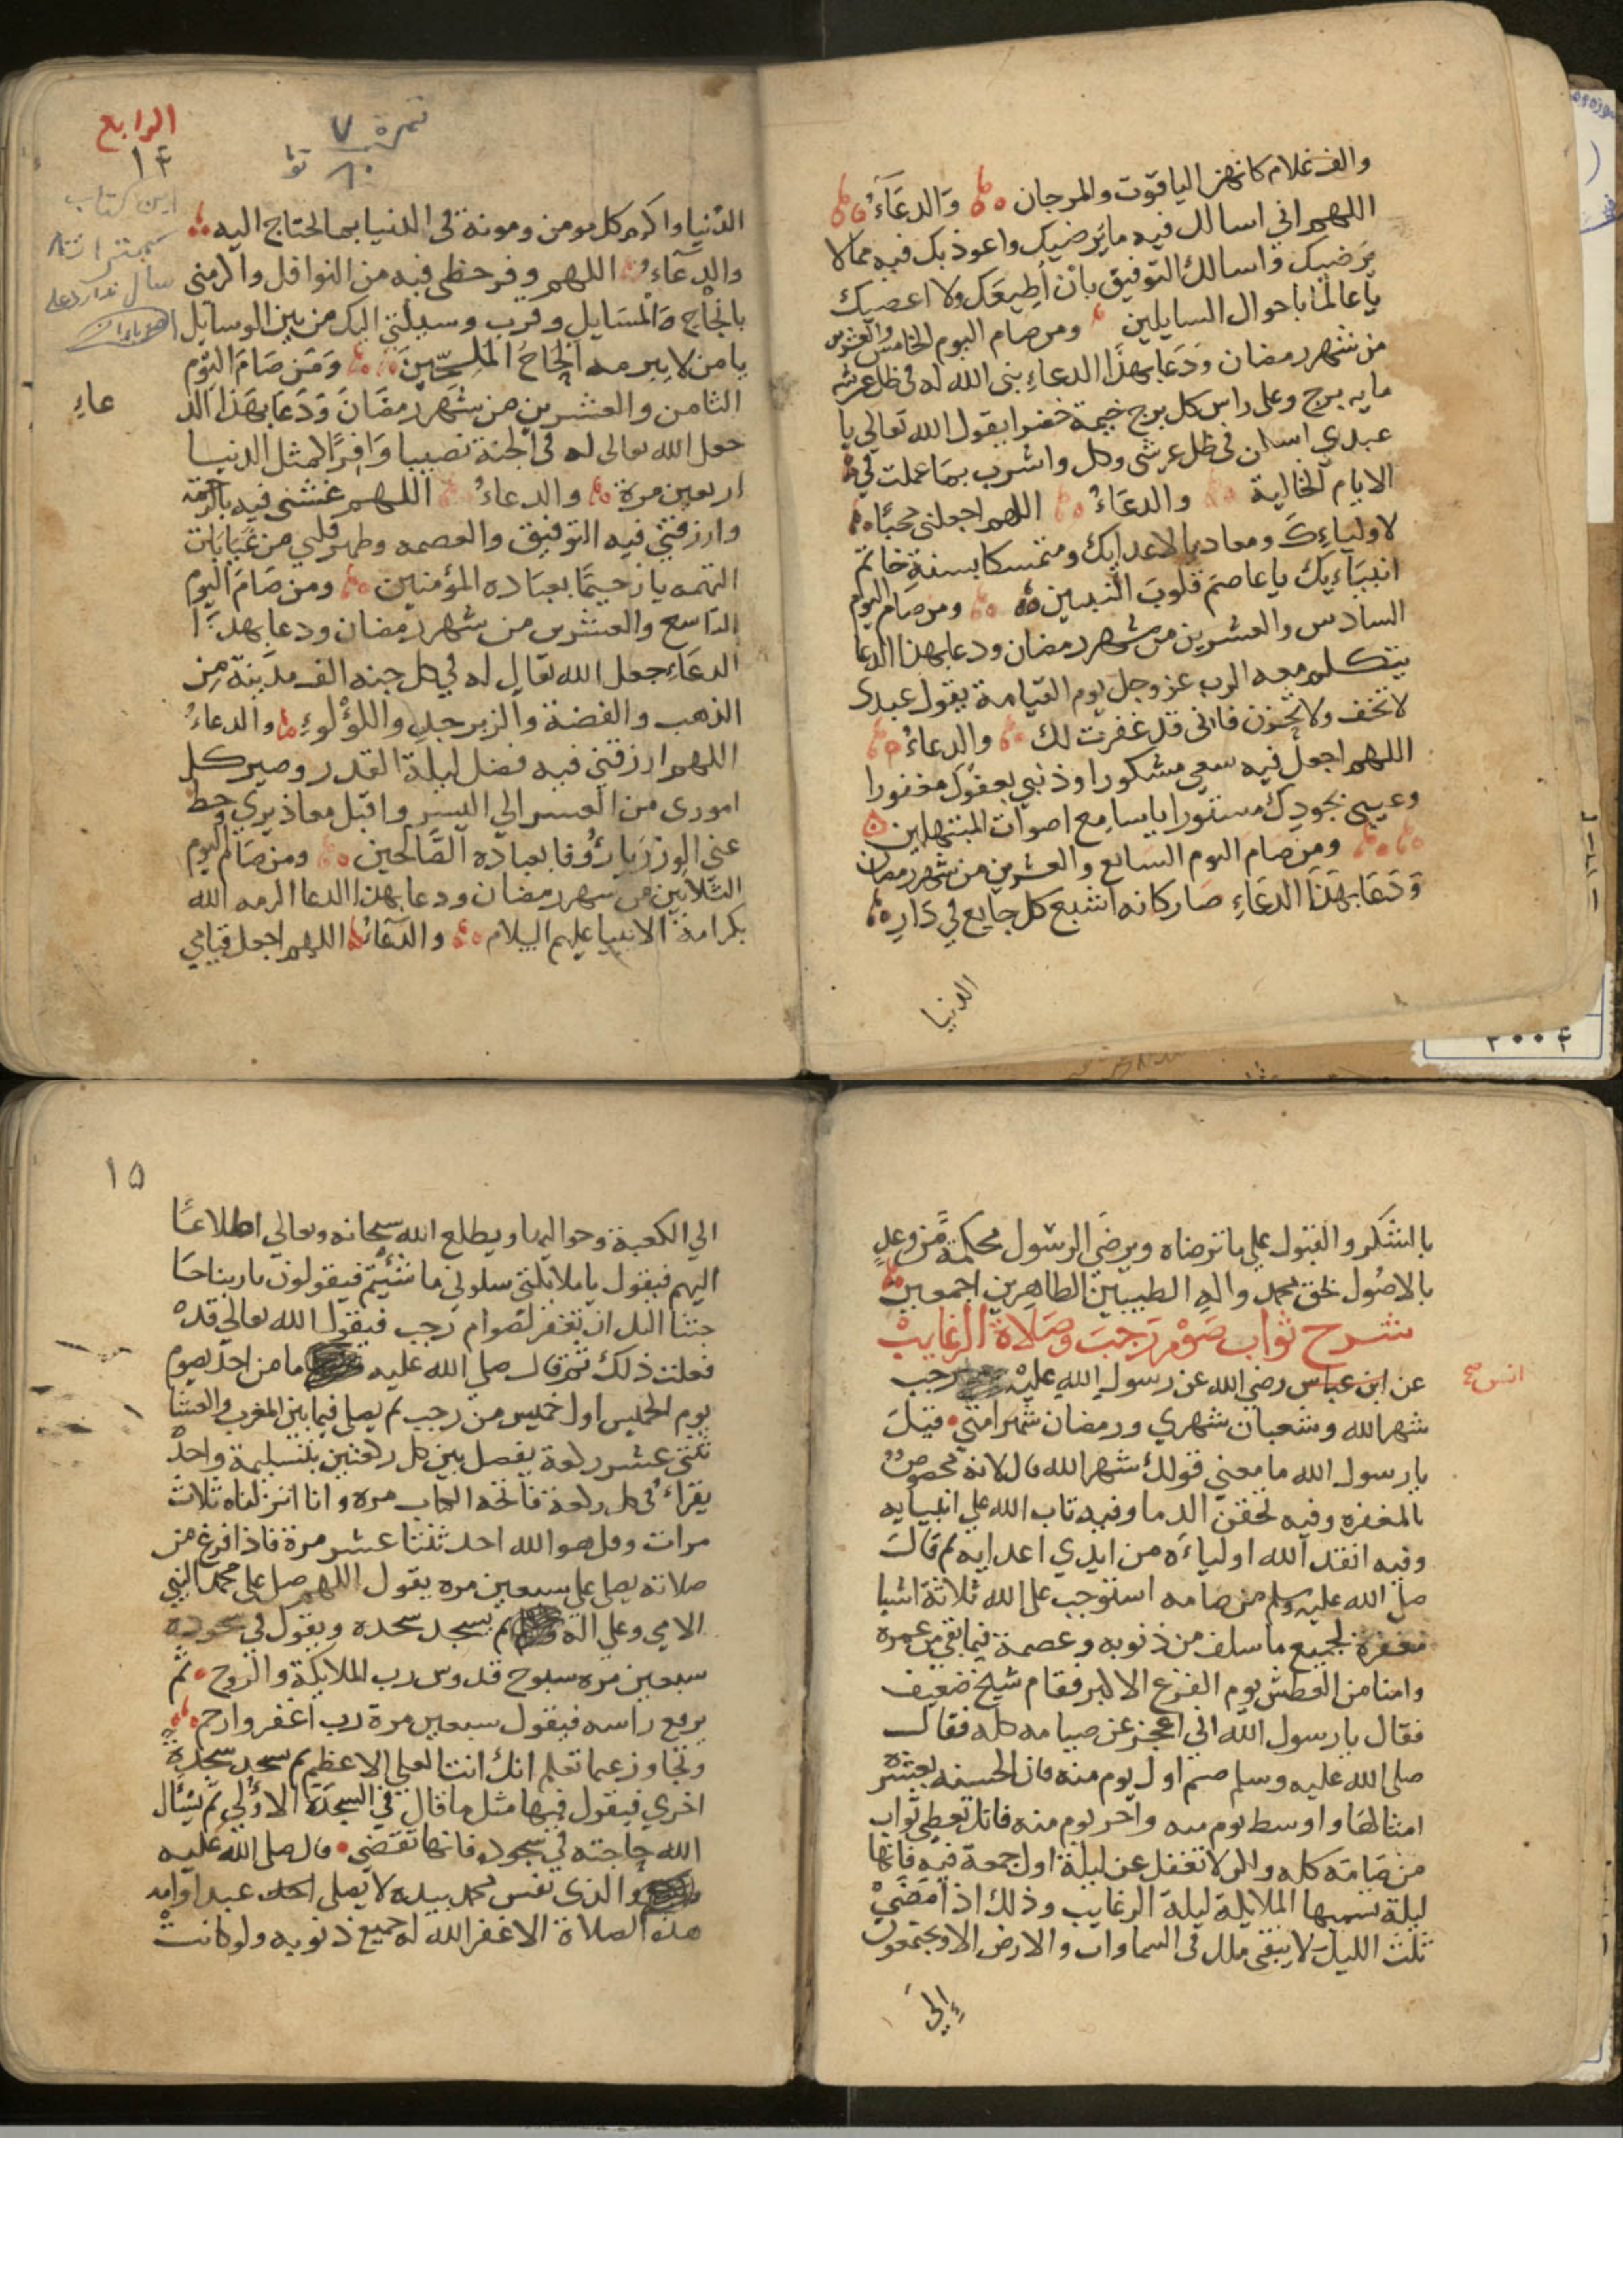 والف غلام كانهن الياقوت والمرجان والدعَاءُ
اللهم اني اسالك فيه ما يرضيك واعوذ بك فيه مما لا
يرضيك واسالك التوفيق بان اطيعك ولا اعصيك
يا عالما باحوال السايلين ومن صام اليوم الخامس والعشرين
من شهر رمضان وَدَعَا بهذا الدعاءِ بنى الله له في ظل عرشه
مايه برج وعلى راس كل برج خيمة خضرا يقول الله تعالي يا
عبدي اسكن في ظل عرشي وكل واشرب بمَا عملت في
الايام الخالية والدعَاءُ اللهم اجعلني محبًا
لاولياءِكَ ومعاديا لاعدايك ومتمسكا بسنةِ خاتم
انبيَاءِيك يا عاصمَ قلوبَ النبيين ومن صَام اليوم
السادس والعشرين من شهر رمضان ودعا بهذا الدعا
يتكلم معه الرب عز وجل يوم القيامة يقول عبدى
لا تخف ولا تحزن فانى قد غفرت لك والدعاءُ
اللهم اجعل فيه سعي مشكورا وذنبي بعفوك مغفورا
وعيبى بجودك مستورا يا سامِع اصوات المبتهلين
ومن صَام اليوم السابع والعشرين من شهر رمضان
وَدَعَا بهَذا الدعَاءِ صَار كانه اشبع كل جايع في دَارِ
الدنيا
الرابع
١٤
نمره ٧
اين كتاب
الدنيا واكرم كل مومن ومونة في الدنيا بما يحتاج اليه
والدعاءُ اللهم وفر حظى فيه من النوافل واكرمنى
بانجاح المْسَايل وقرب وسيلتي اليك من بين الوسايل
يا من لا يبرمه الحاحُ الملحّينَ وَمَن صَامَ اليَوم
الثامن والعشرين من شهَر رمضَانَ وَدَعَا بهَذا الد
عاءِ
جعل الله تعالى له في الجنة نصيبا وَافِرًا كمثل الدنيا
اربعين مرة والدعاءُ اللهم غشنى فيه بالرحمة
وارزقني فيه التوفيق والعصمه وطهر قلبي من غيَابَات
التهمه يا رَحيمًا بعبَاده المؤمنين ومن صَامَ اليوم
التاسع والعشرين من شهر رمضان ودعا بهذا
الدعَاءِ جعل الله تعالى له في كل جنه الف مدينة مِن
الذهب والفضة والزبرجدِ واللؤلوءِ والدعاءُ
اللهم ارزقني فيه فضل ليلة القدر وصير كل
امورى من العسر الي اليسر واقبل معاذيري وحط
عني الوزر يَا رؤفا بعباده الصَّالحين ومن صَام اليوم
الثلاثين من شهر رمضان ودعا بهذا الدعا اكرمه الله
بكرامة الانبيا عليهم السلام والدّعَاءُ اللهم اجعل قيامي
بالشكر والقبول علي ما ترضاه ويرضَى الرسول محكمة فروعه
بالاصُول بحق محمد والهِ الطيبين الطاهِرين اجمعين
شرح ثواب صَوْم رَجبَ وصَلاة الرغايبْ
عن ابن عباس رضي الله عن رسول الله عليْه رجب
انس صح
شهر الله وشعبان شهري ورمضان شهر امتي فقيل
يا رسول الله ما معني قولك شهر الله قال لانه مخصوصٌ
بالمغفرة وفيه تحقن الدما وفيه تاب الله علي انبيايه
وفيه انقذ الله اولياءَه من ايدي اعدايه ثم قالَ
صل الله عليه وسلم من صامه استوجب على الله ثلاثة اشيا
مغفرة لجميع ما سلف من ذنوبه وعصمة فيما بقي من عمره
وامنا من العطش يوم الفزع الاكبر فقام شيخ ضعيف
فقال يا رسول الله اني اعجز عن صيامه كله فقال
صلى الله عليه وسلم صم اول يوم منه فان الحسنه بعشر
امثالهَا واوسط يوم منه واخر يوم منه فانك تعطي ثواب
من صَامَه كله ولكن لا تغفل عن ليلة اول جمعة فيه فانها
ليلة تسميها الملايكة ليلة الرغايب وذلك اذا مَضَيْ
ثلث الليل لا يبقى ملك في السماوات والارض الا ويجتمعون
إلَي
١٥
الي الكعبة وحواليها ويطلع الله سبحانه وتعالي اطلاعًا
اليهم فيقول يا ملايكتي سلوني ما شئيتم فيقولون يا ربنا حَا
جتنا اليك ان تغفر لصوام رجب فيقول الله تعالي قدْ
فعلت ذلك ثم قال صلي الله عليه ما من احد يصوم
يوم الخميس اول خميس من رجب ثم يصلي فيما بين المغرب والعشا
ثنتي عشر ركعة يفصل بين كل ركعتين بتسليمة واحدْ
يقراءُ في كل ركعة فاتحه الكتاب مره وانا انزلناه ثلاث
مرات وقل هو الله احد ثنتا عشر مرة فاذا فرغ من
صلاته يصلي علي سبعين مره يقول اللهم صل علي محمد النبي
الامي وعلي اله ثم يسجد سجده ويقول في سجوده
سبعين مَره سبوح قدوس رب الملايكة والروح ثم
يرفع راسه فيقول سبعين مرة رب اغفر وارحم
وتجاوز عما تعلم انك انت العلي الاعظم ثم سجد سجدة
اخري فيقول فيها مثل ما قال في السجدَة الاوُلي ثم يسْئال
الله حاجته في سجوده فانها تقضي قال صلى الله عليه
والذى نفس محمد بيده لا يصلي احد عبد او امه
هذه الصلاة الا غفر الله له جميع ذنوبه ولو كانتْ